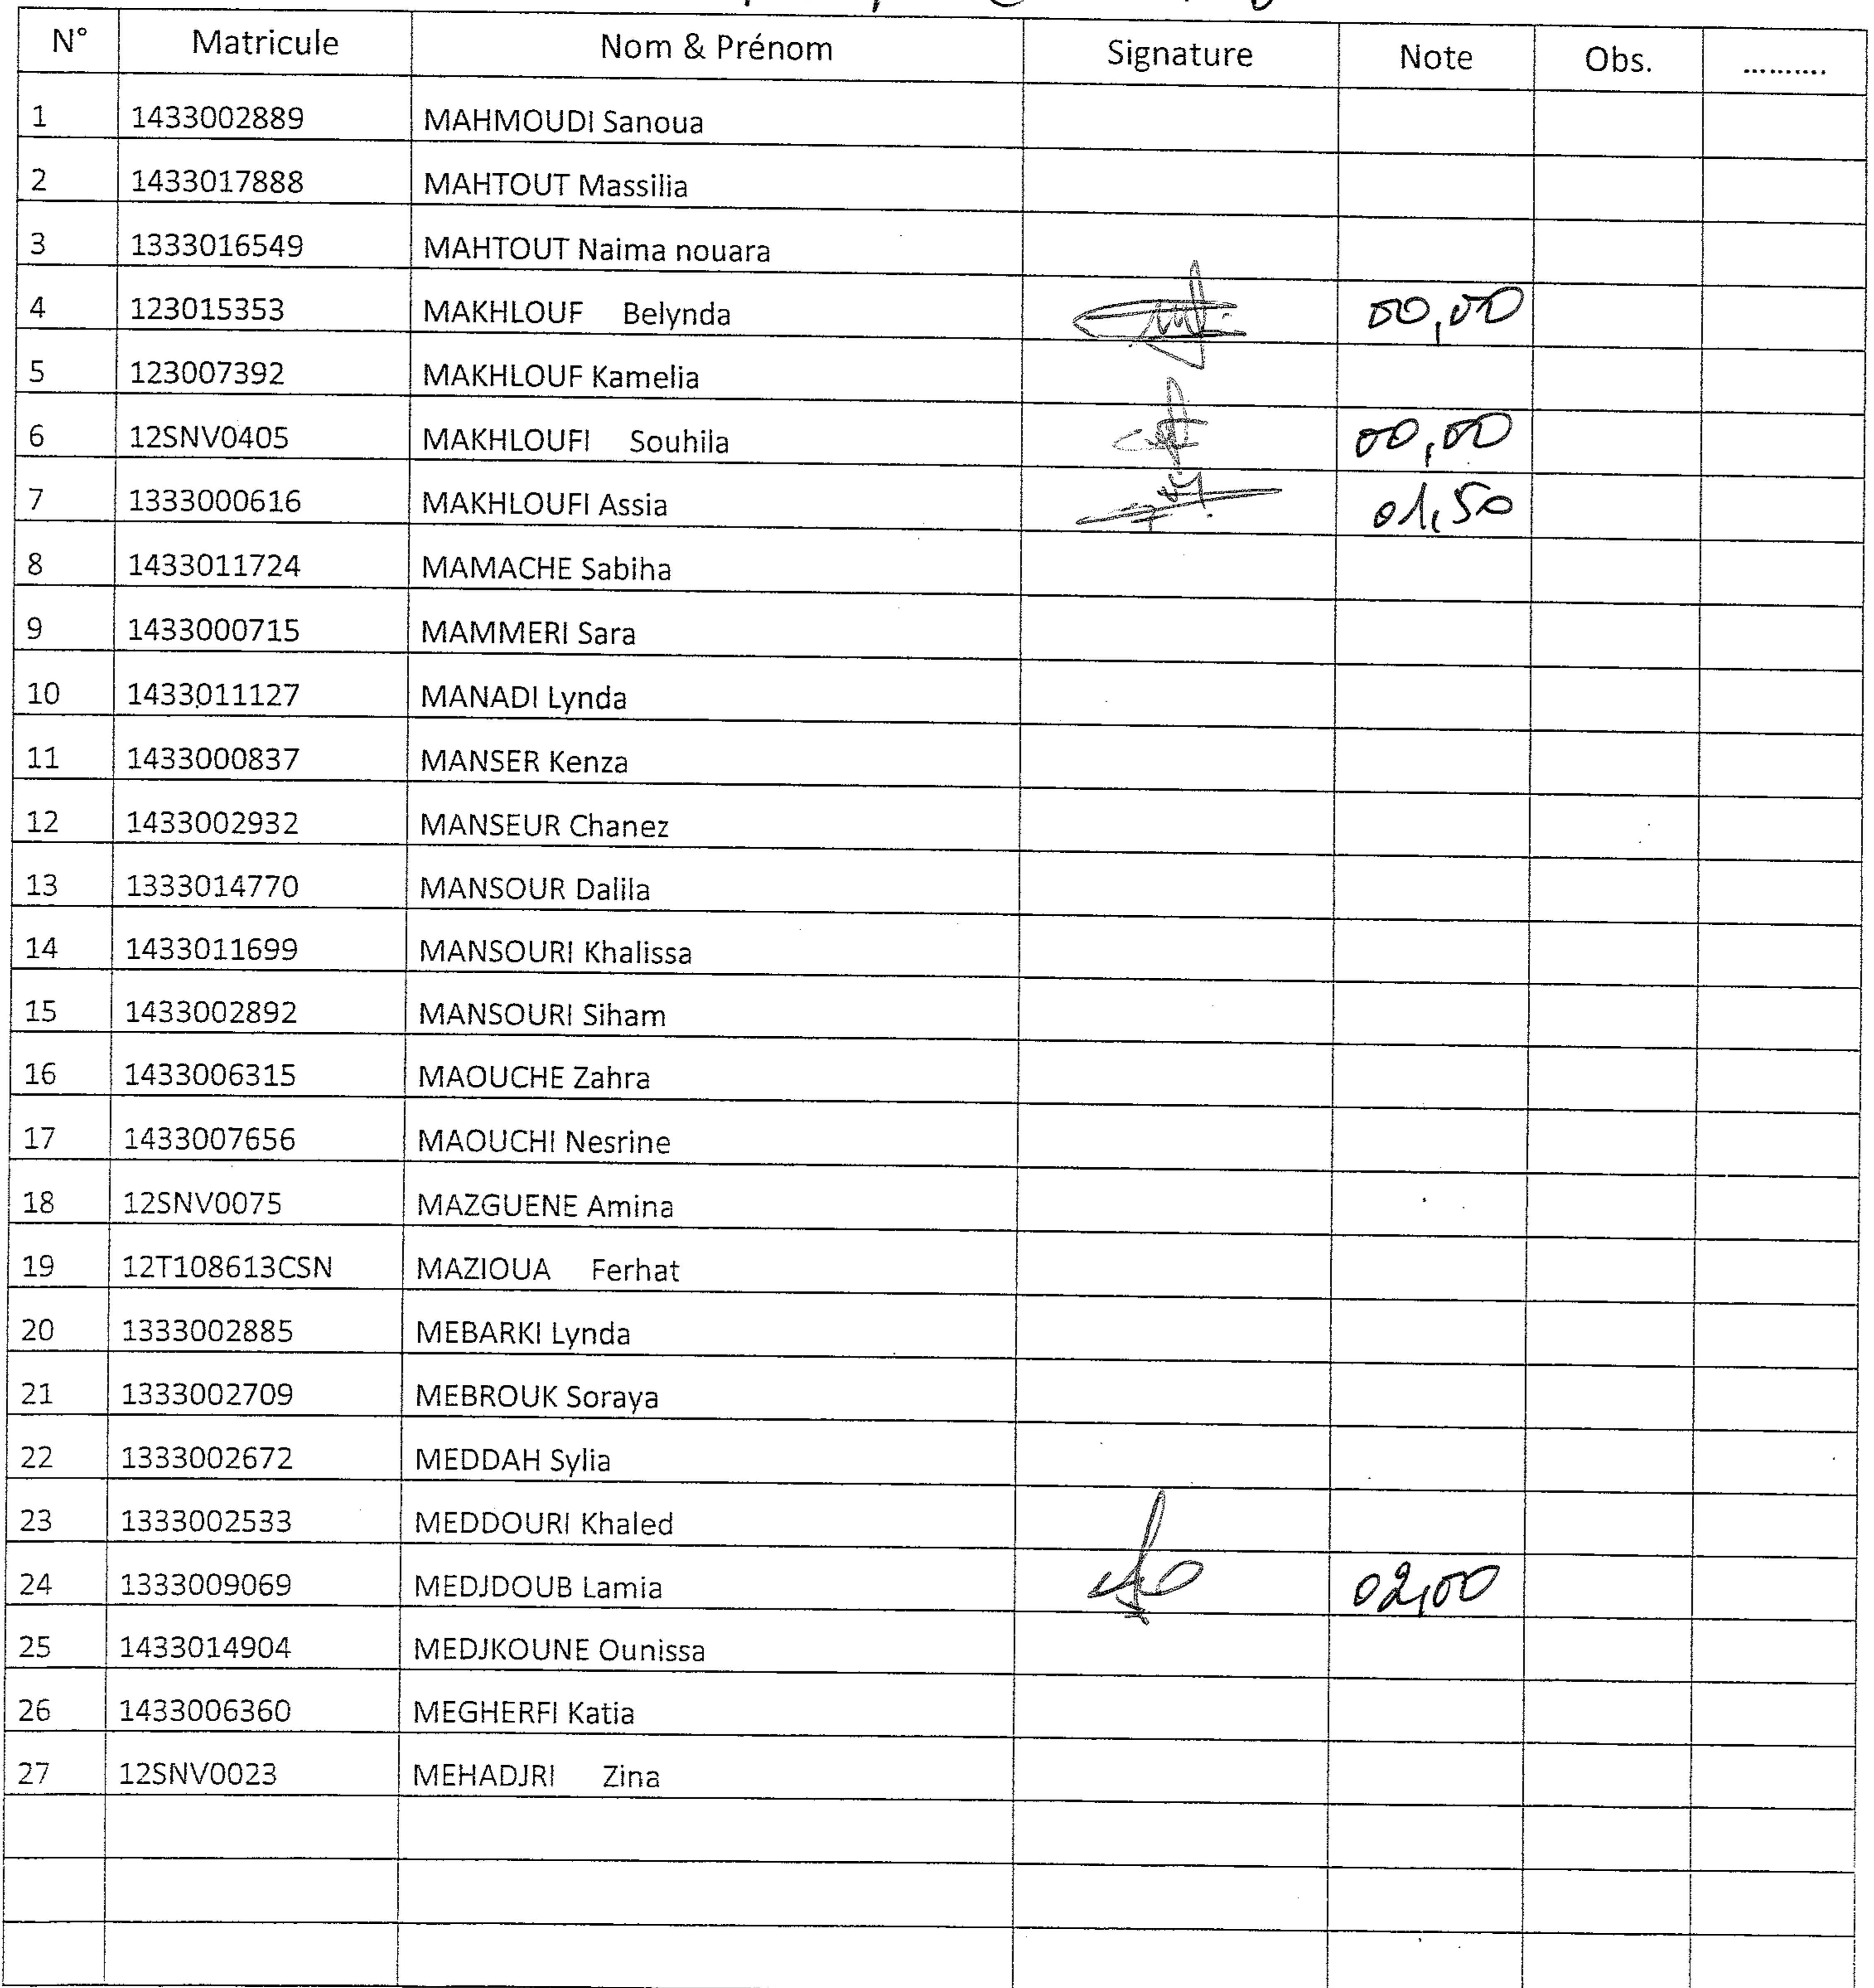 N° Matricule Nom & Prénom Signature Note Obs. ..........
1 1433002889 MAHMOUDI Sanoua
2 1433017888 MAHTOUT Massilia
3 1333016549 MAHTOUT Naima nouara
4 123015353 MAKHLOUF Belynda 00,00
5 123007392 MAKHLOUF Kamelia
6 12SNV0405 MAKHLOUFI Souhila 00,00
7 1333000616 MAKHLOUFI Assia 01,50
8 1433011724 MAMACHE Sabiha
9 1433000715 MAMMERI Sara
10 1433011127 MANADI Lynda
11 1433000837 MANSER Kenza
12 1433002932 MANSEUR Chanez
13 1333014770 MANSOUR Dalila
14 1433011699 MANSOURI Khalissa
15 1433002892 MANSOURI Siham
16 1433006315 MAOUCHE Zahra
17 1433007656 MAOUCHI Nesrine
18 12SNV0075 MAZGUENE Amina
19 12T108613CSN MAZIOUA Ferhat
20 1333002885 MEBARKI Lynda
21 1333002709 MEBROUK Soraya
22 1333002672 MEDDAH Sylia
23 1333002533 MEDDOURI Khaled
24 1333009069 MEDJDOUB Lamia 02,00
25 1433014904 MEDJKOUNE Ounissa
26 1433006360 MEGHERFI Katia
27 12SNV0023 MEHADJRI Zina